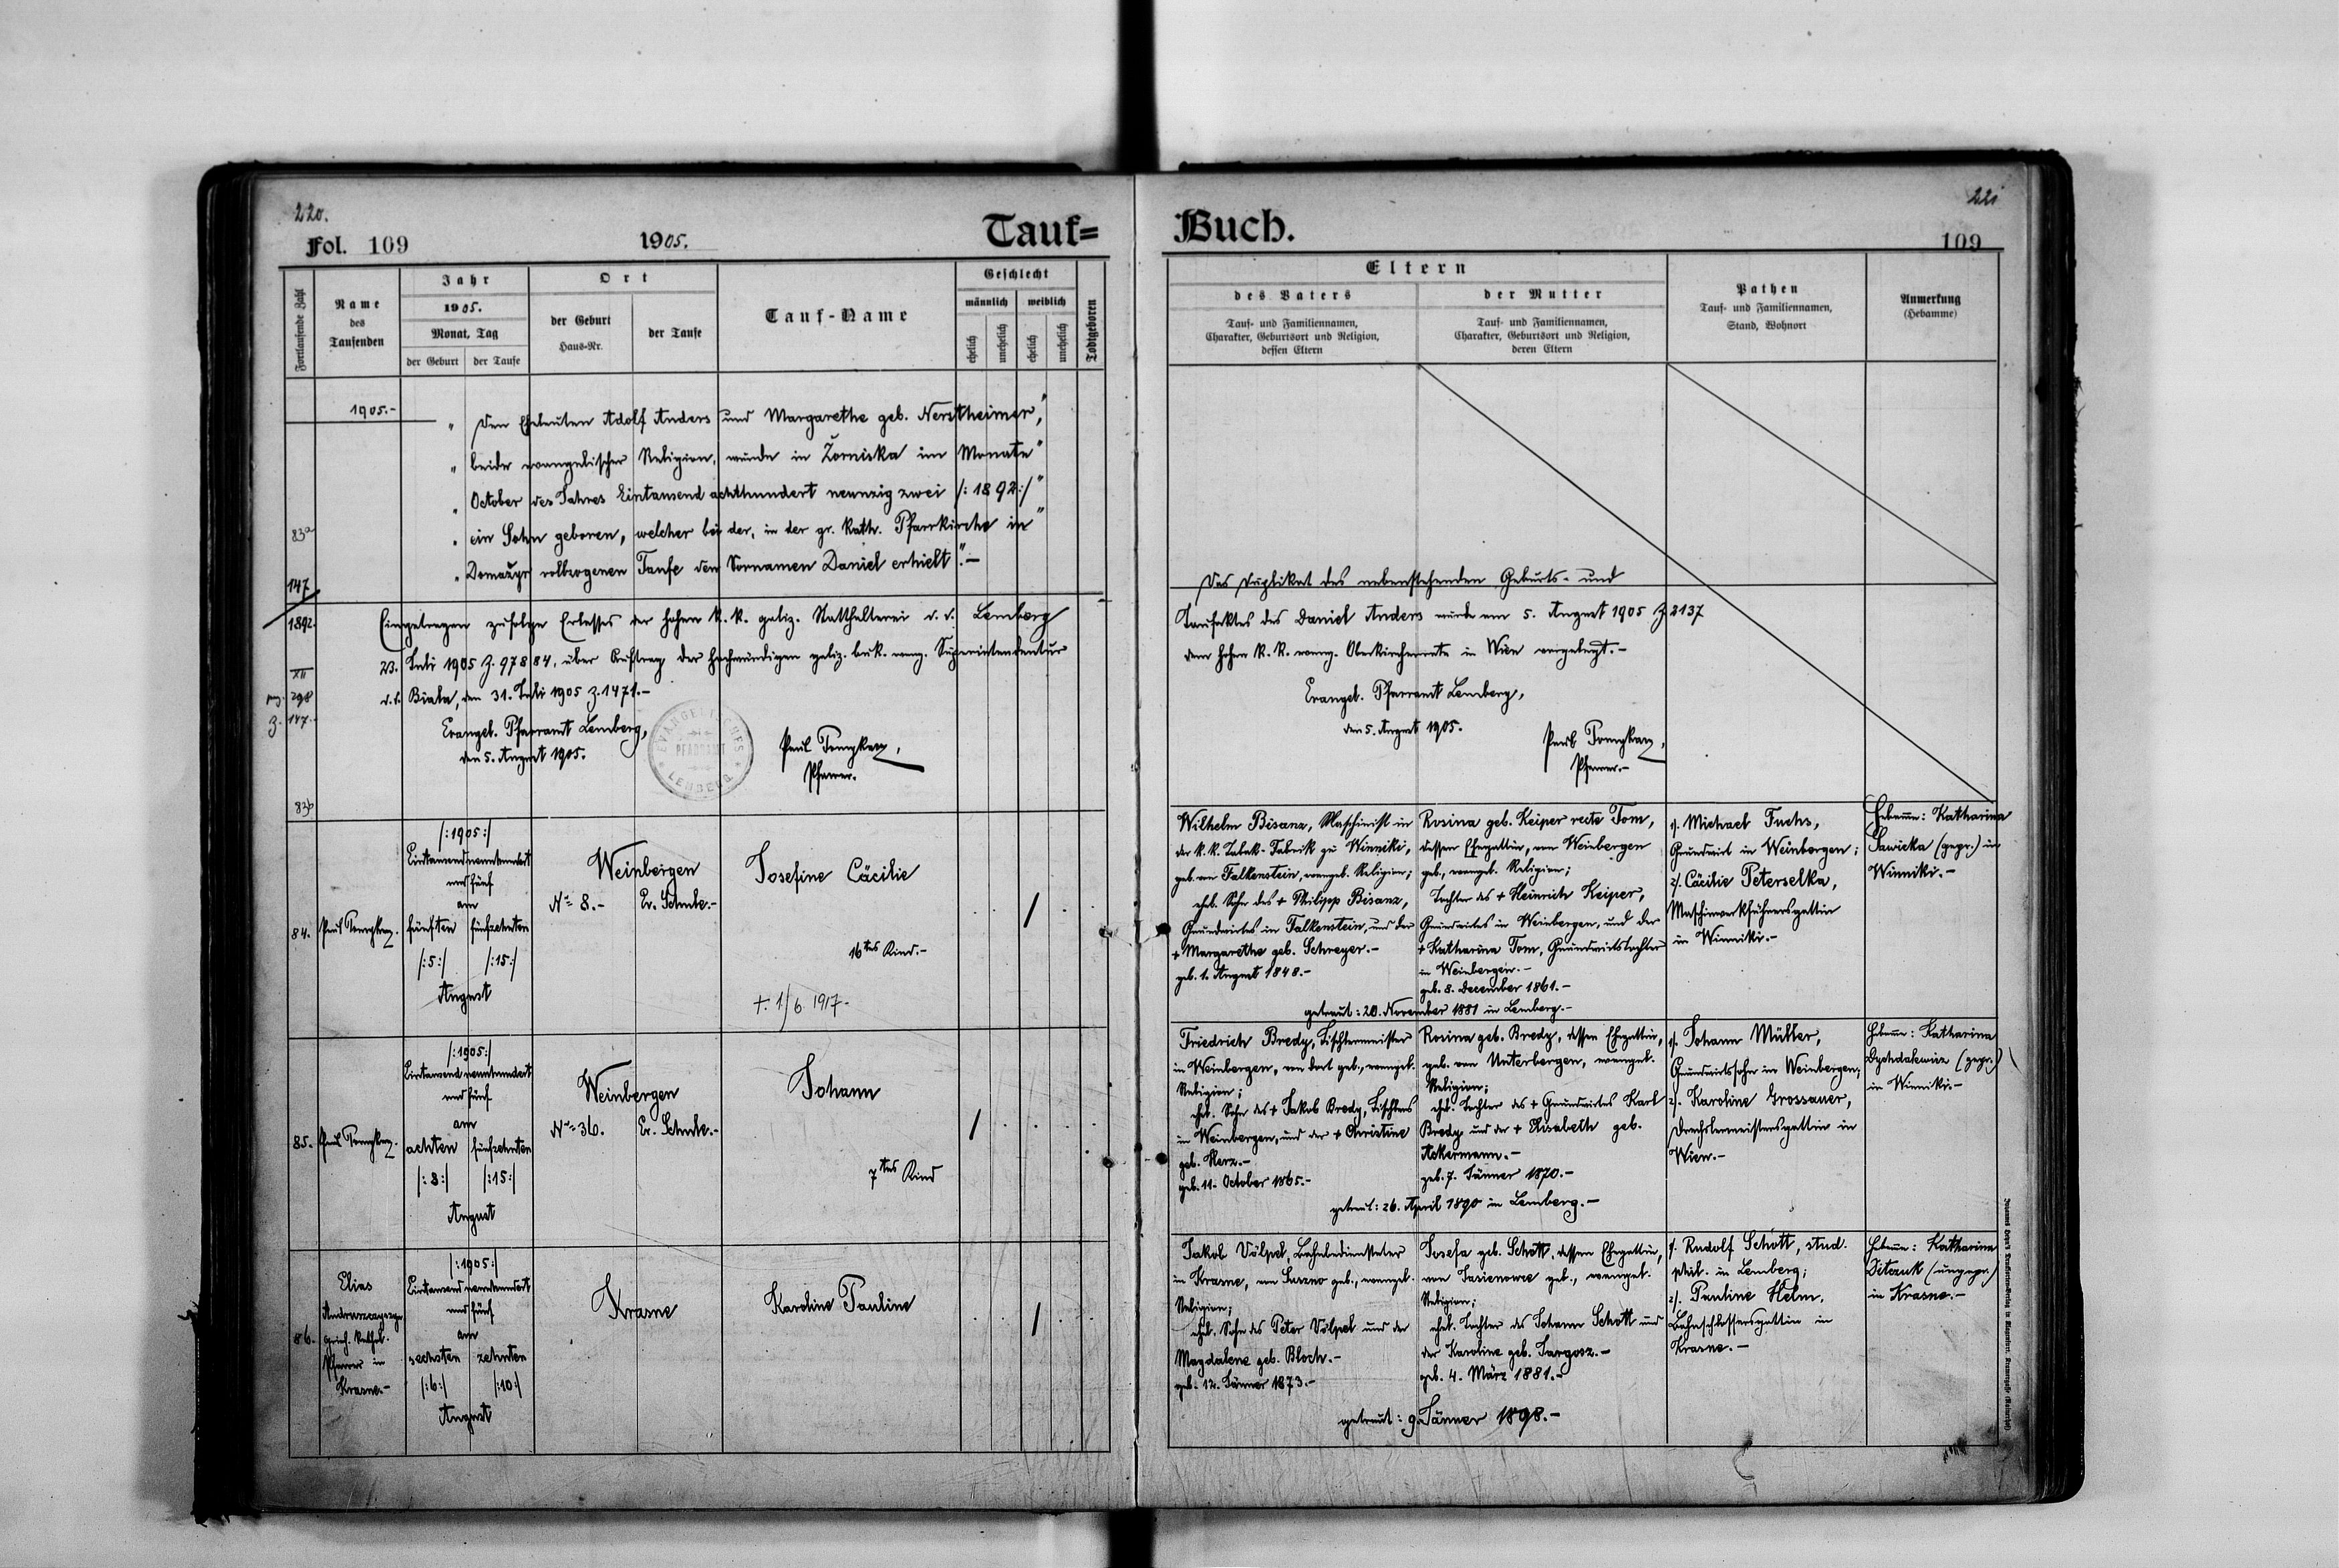 220.
Fol. 109
1905.
Tauf=
Fortlaufende Zahl
Name
des
Taufenden
Jahr
1905.
Monat, Tag
der Geburt
der Taufe
Ort
der Geburt
Haus-Nr.
der Taufe
Tauf-Name
Geschlecht
männlich
weiblich
ehelich
unehelich
ehelich
unehelich
Todtgeboren
1905.-
„ Den Eheleuten Adolf Anders und Margarethe geb. Nerstheimer,"
„ beide evangelischer Religion, wurde in Żorniska im Monate"
„ October des Jahres Eintausend achthundert neunzig zwei /:1892:/"
„ ein Sohn geboren, welcher bei der, in der gr. kath. Pfarrkirche in"
„ Domażyr vollzogenen Taufe den Vornamen Daniel erhielt".-
83a
147
1892.
XII
298
147.
83b
Eingetragen zufolge Erlasses der hohen k. k. galiz. Statthalterei d. d. Lemberg
23. Juli 1905 Z. 97884, über Auftrag der hochwürdigen galiz. buk. evang. Superintendentur
d. d. Biala, den 31. Juli 1905 Z. 1471.-
Evangel. Pfarramt Lemberg,
den 5. August 1905.
EVANGELISCHES
PFARRAMT
LEMBERG
Paul
Pfarrer.
84.
Paul
/:1905:/
Eintausendneunhundert
und fünf
am
fünften
fünfzehnten
/:5:/
/:15:/
August
Weinbergen
No 8.-
Ev. Schule.-
Josefine Cäcilie
16tes Kind.-
+ 1/6. 1917.-
85.
Paul
/:1905:/
Eintausend neunhundert
und fünf
am
achten
fünfzehnten
/:8:/
/:15:/
August
Weinbergen
No 36.
Ev. Schule.-
Johann
7tes Kind
86.
Elias
griech. kathol.
Pfarrer in
Krasne.-
/:1905:/
Eintausend neunhundert
und fünf
am
sechsten
zehnten
/:6:/
/:10:/
August
Krasne
Karoline Pauline
Buch.
221
109
Eltern
des Vaters
Tauf- und Familiennamen,
Charakter, Geburtsort und Religion,
dessen Eltern
der Mutter
Tauf- und Familiennamen,
Charakter, Geburtsort und Religion,
deren Eltern
Pathen
Tauf- und Familiennamen,
Stand, Wohnort
Anmerkung
(Hebamme)
Das Duplikat des nebenstehenden Geburts- und
Taufaktes des Daniel Anders wurde am 5. August 1905 Z 2137
dem hohen k. k. evang. Oberkirchenrate in Wien vorgelegt.-
Evangel. Pfarramt Lemberg,
den 5. August 1905.
Paul
Pfarrer.-
Wilhelm Bisanz, Maschinist in
der k. k. Tabak-Fabrik zu Winniki,
geb. von Falkenstein, evangel. Religion;
ehel. Sohn des + Philipp Bisanz,
Grundwirtes in Falkenstein, und der
+ Margarethe geb. Schreyer.-
geb. 1. August 1848.-
Rosina geb. Keiper recte Tom,
dessen Ehegattin, von Weinbergen
geb., evangel. Religion;
Tochter des + Heinrich Keiper,
Grundwirtes in Weinbergen, und der
+ Katharina Tom, Grundwirtstochter
in Weinbergen.-
geb. 8. December 1861.-
getraut: 20. November 1881 in Lemberg.-
1). Michael Fuchs,
Grundwirt in Weinbergen;
2). Cäcilie Peterselka,
Maschinwerkführersgattin
in Winniki.-
Hebamme: Katharina
Sawicka (gepr.) in
Winniki.-
Friedrich Bredy, Tischlermeister
in Weinbergen, von dort geb., evangel.
Religion;
ehel. Sohn des + Jakob Bredy, Tischlers
in Weinbergen, und der + Christine
geb. Herz.-
geb. 11. October 1865.-
Rosina geb. Bredy, dessen Ehegattin,
geb. von Unterbergen, evangel.
Religion;
ehel. Tochter des + Grundwirtes Karl
Bredy und der + Elisabeth geb.
Ackermann.-
geb. 7. Jänner 1870.-
getraut: 26. April 1890 in Lemberg.-
1). Johann Müller,
Grundwirtssohn in Weinbergen;
2). Karoline Grossauer,
Drechslermeistersgattin in
Wien.-
Hebamme: Katharina
(gepr.)
in Winniki.-
Jakob Völpel, Bahnbediensteter
in Krasne, von Suszno geb., evangel.
Religion;
ehel. Sohn des Peter Völpel und der
Magdalene geb. Bloch.-
geb. 12. Jänner 1873.-
Josefa geb. Schott, dessen Ehegattin,
von Jasienowce geb., evangel.
Religion;
ehel. Tochter des Johann Schott und
der Karoline geb. Targosz.-
geb. 4. März 1881.-
getraut: 9. Jänner 1898.-
1). Rudolf Schott, stud.
phil. in Lemberg;
2). Pauline Helm,
Bahnschlossersgattin in
Krasne.-
Hebamme: Katharina
Ditczuk (ungepr.)
in Krasne.-